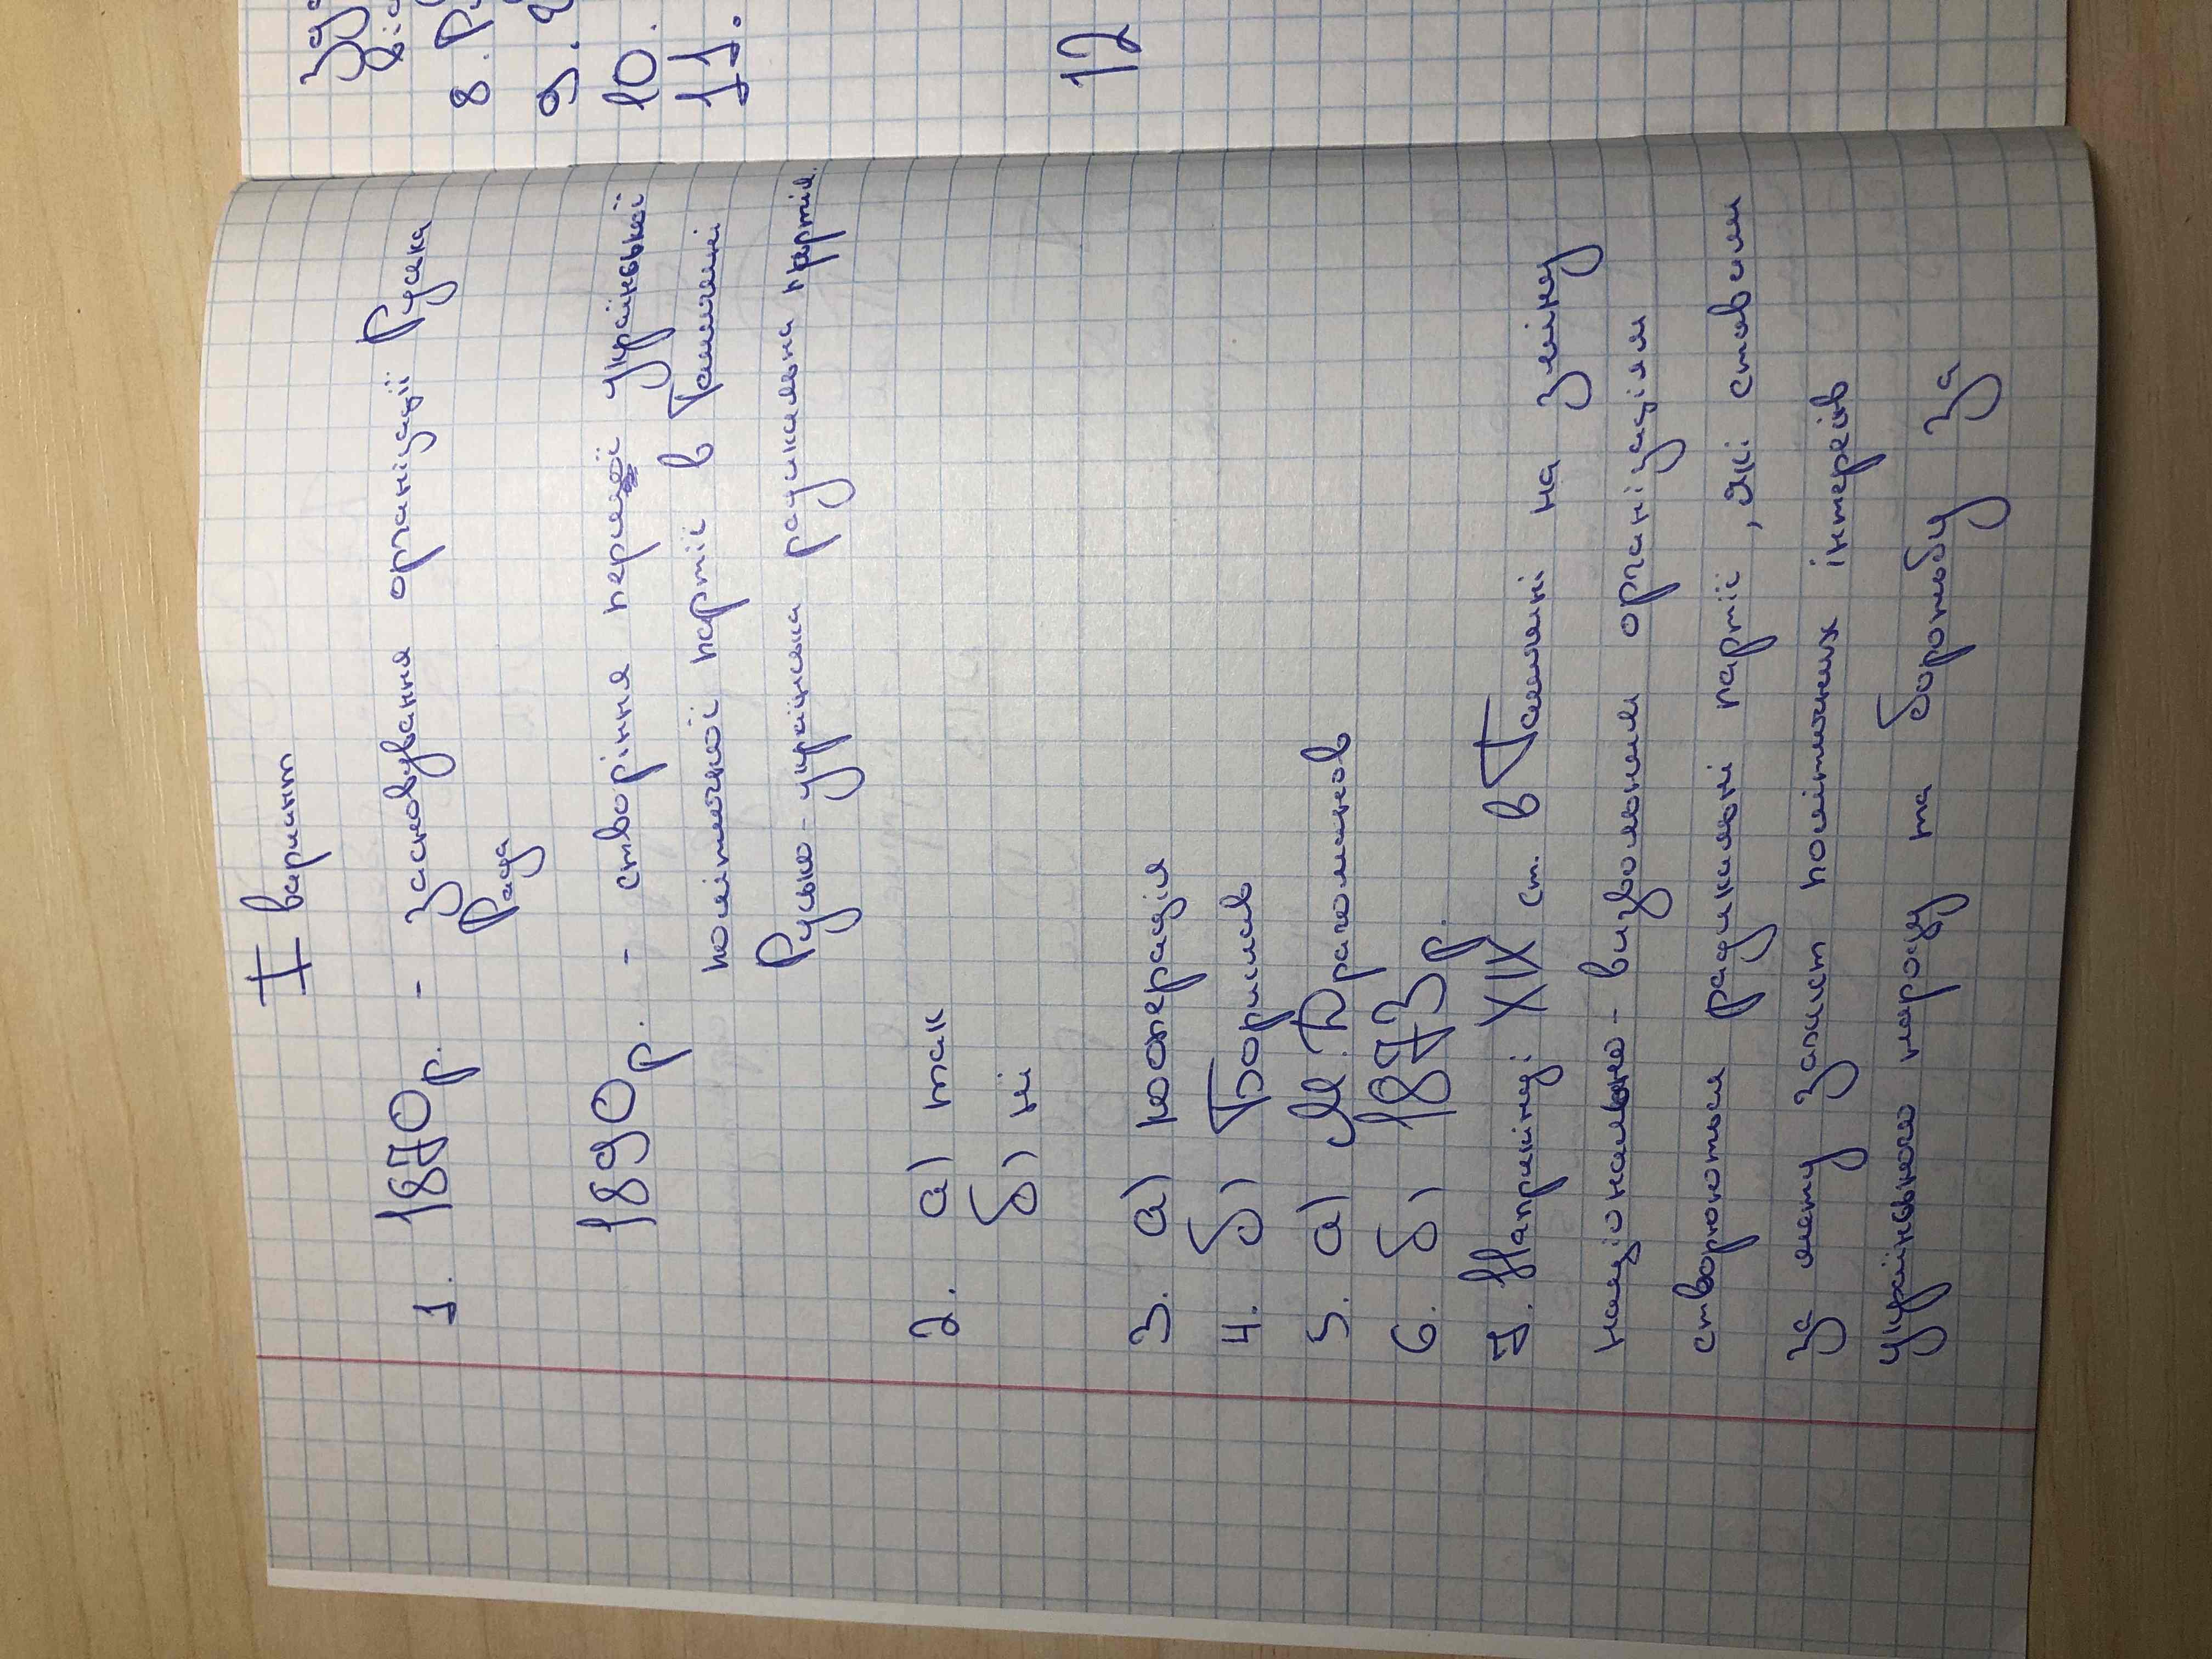 I варіант
1. 1870р. - Заснування організації Руська
Рада
1890р. - створіння першої української
політичної партії в Галичині
Русько-українська радикальна партія.
2. а) так
б) ні
3. а) кооперація
4. б) Борислав
5. а) М. Драгоманов
6. б) 1873р.
7. Наприкінці XIX ст. в Галичині на зміну
національно-визвольним організаціям
створюються радикальні партії, які ставили
за мету захист політичних інтереів
українського народу та боротьбу за
8. Р
9.
10.
11.
12